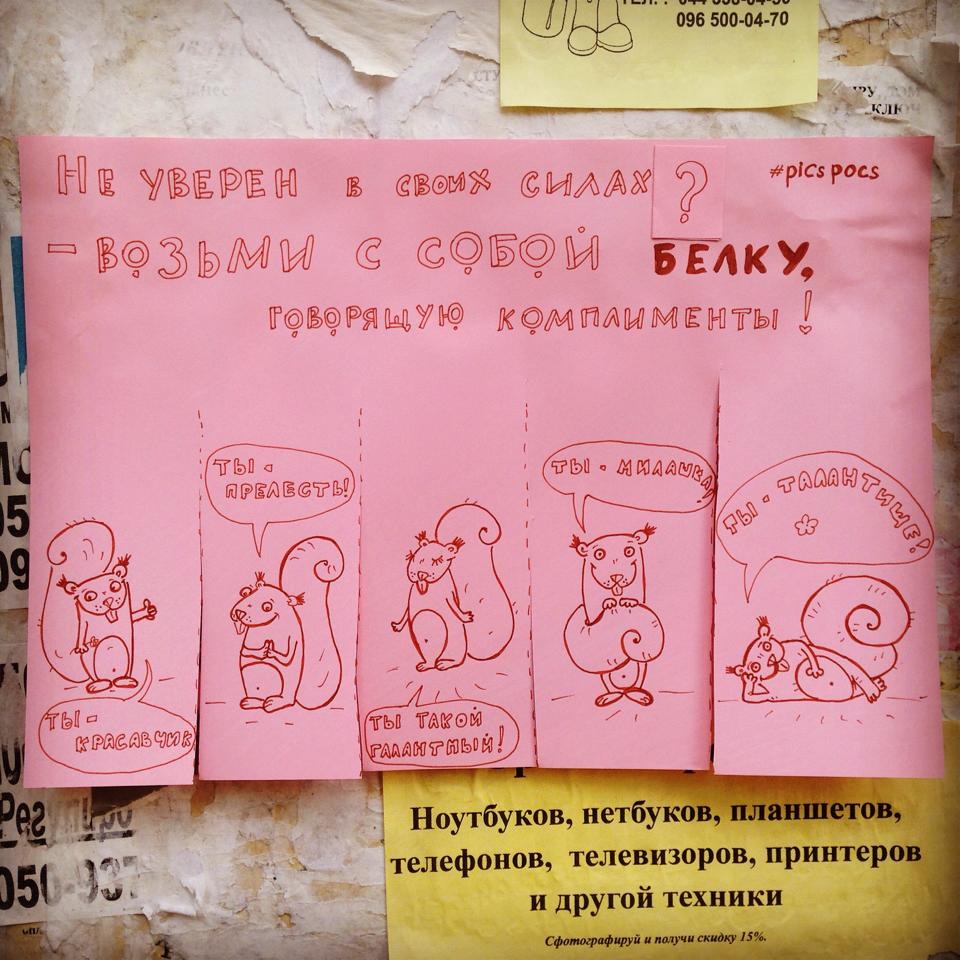 096 500-04-70
КЛЮЧ
Не уверен в своих силах?
#pics pocs
- возьми с собой БЕЛКУ,
говорящую комплименты!
Ты - красавчик
Ты - прелесть!
Ты такой галантный!
Ты - милашка!
Ты - талантище!
Ноутбуков, нетбуков, планшетов,
телефонов, телевизоров, принтеров
и другой техники
Сфотографируй и получи скидку 15%.
050-937